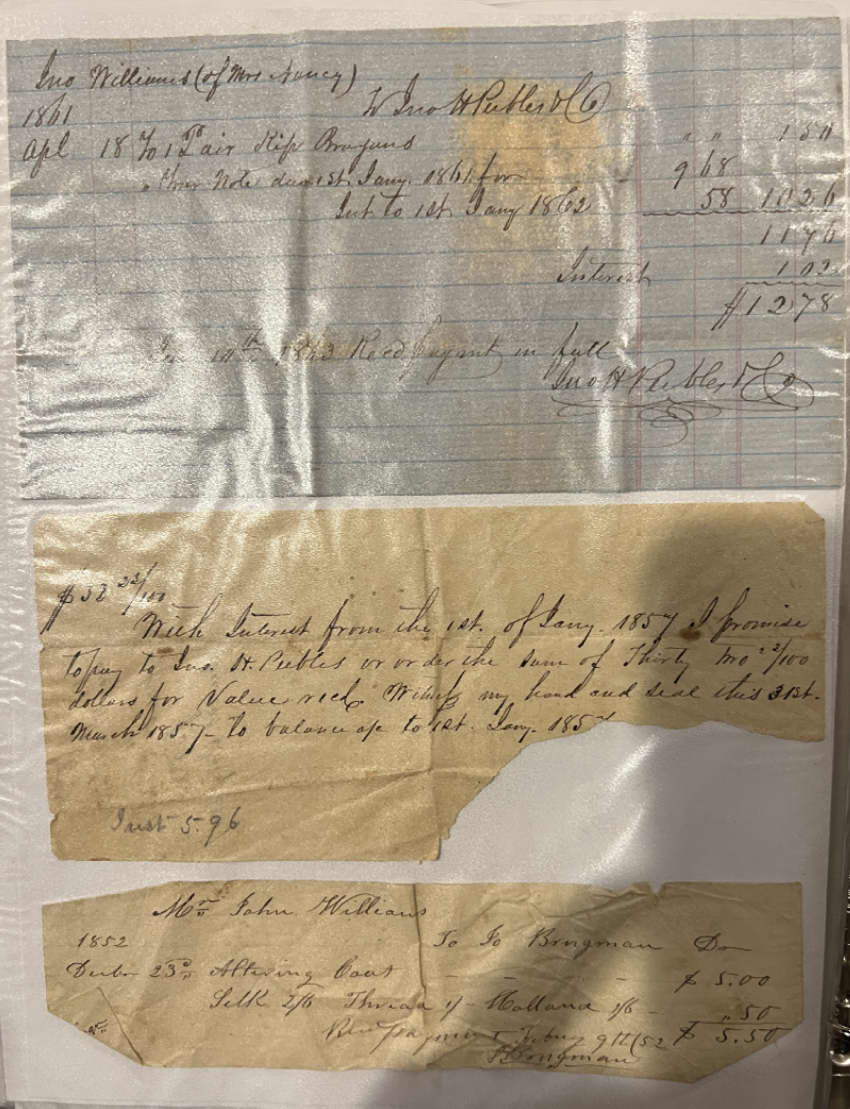 Jno Williams (of Mrs Nancy)
1861 To Jno H Peebles & Co
Apl 18 To 1 Pair Kip Brogans " " 1 50
" Your Note due 1st Jany. 1861 for 9 68
Int to 1st Jany 1862 58 10 26
11 76
Interest 1 02
$12 78
10th 1863 Recd payment in full
Jno H Peebles & Co
$32 22/100
With Interest from the 1st. of Jany. 1857 I promise
to pay to Jno. H. Peebles or order the sum of Thirty two 22/100
dollars for Value recd. Witness my hand and seal this 31st.
March 1857 - to balance a/c to 1st. Jany. 1857
Inst 5.96
Mr John Williams
1852 To Jo Brugman Dr
Decbr 23d Altering Coat - - - - $ 5.00
Silk 2/6 Thread 1/- Holland 1/6 - " 50
Recd payment Febuy 9th /52 $ 5.50
Brugman